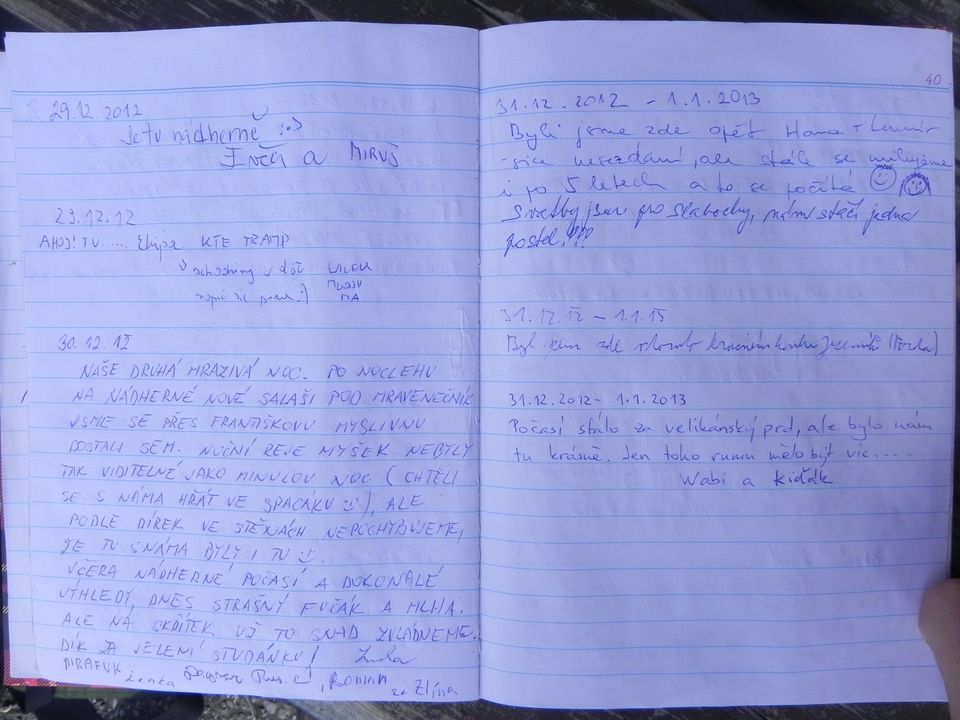 29.12.2012
Je tu nádherně :o)
Ivča a MIRUŠ
29.12.12
AHOJ! TU ..... Ekipa KTE TRAMP
v dál
30.12.12
NAŠE DRUHÁ MRAZIVÁ NOC. PO NOCLEHU
NA NÁDHERNÉ NOVÉ SALAŠI POD MRAVENEČNÍK
JSME SE PŘES FRANTIŠKOVU MYSLIVNU
DOSTALI SEM. NOČNÍ REJE MYŠEK NEBYLY
TAK VIDITELNÉ JAKO MINULOU NOC (CHTĚLI
SE S NÁMA HŘÁT VE SPACÁKU :-)), ALE
PODLE DÍREK VE STĚNÁCH NEPOCHYBUJEME,
ŽE TU S NÁMA BYLY I TU :-)
VČERA NÁDHERNÉ POČASÍ A DOKONALÉ
VÝHLEDY, DNES STRAŠNÝ FUČÁK A MLHA.
ALE NA SKŘÍTEK UŽ TO SNAD ZVLÁDNEME.
DÍK ZA JELENÍ STUDÁNKU!
Lenka ROMAN ze Zlína
40
31.12.2012 - 1.1.2013
Byli jsme zde opět Hana +
sice nesezdání, ale stále se milujeme
i po 5 letech a to se počítá
Svatby jsou pro slabochy, nám stačí jedna
postel!!!
31.12.12 - 1.1.13
Byl jsem zde
31.12.2012 - 1.1.2013
Počasí stálo za velikánský prd, ale bylo nám
tu krásně. Jen toho rumu mělo být víc....
Wabi a Kiďák